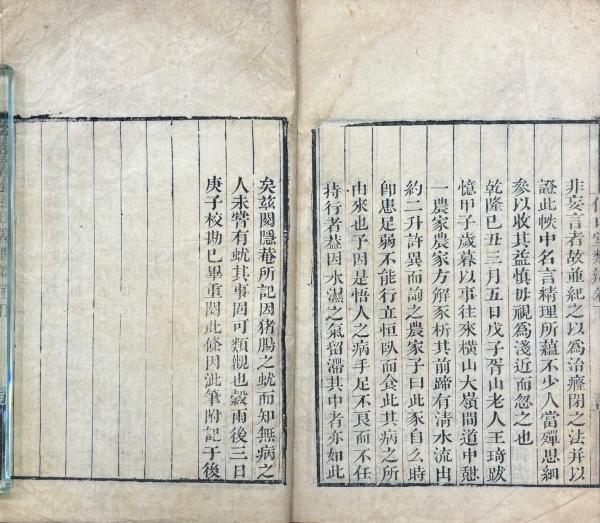 非妄言者故並紀之以為治癃閉之法并以
證此帙中名言精理所蘊不少人當殫思細
參以收其益慎毋視為淺近而忽之也
乾隆己丑三月五日戊子胥山老人王琦跋
憶甲子歲暮以事往來橫山大嶺間道中憩
一農家農家方解豕析其前蹄有清水流出
約二升許異而詢之農家子曰此豕自幺時
卽患足弱不能行立恒臥而食此其病之所
由來也予因是悟人之病手足不良而不任
持行者葢因水濕之氣留滯其中者亦如此
矣茲閱隱菴所記因猪腸之蚘而知無病之
人未嘗有蚘其事因可類觀也穀雨後三日
庚子校勘已畢重閱此條因泚筆附記于後